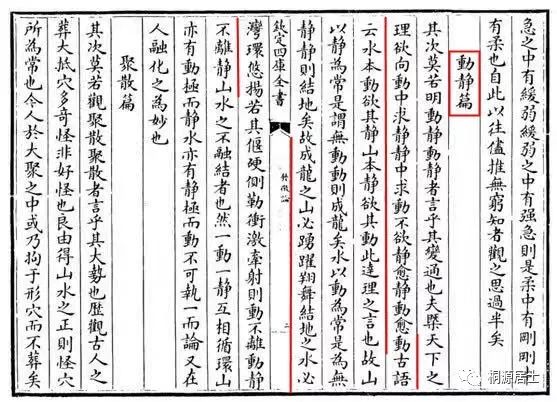 急之中有緩弱緩弱之中有强急則是柔中有剛剛中
有柔也自此以往儘推無窮知者觀之思過半矣
動靜篇
其次莫若明動靜動靜者言乎其變通也夫槩天下之
理欲向動中求靜靜中求動不欲靜愈靜動愈動古語
云水本動欲其靜山本靜欲其動此達理之言也故山
以靜為常是謂無動動則成龍矣水以動為常是為無
靜靜則結地矣故成龍之山必踴躍翔舞結地之水必
欽定四庫全書
發微論
二
灣環悠揚若其偃硬側勒衝激牽射則動不離動靜
不離靜山水之不融結者也然一動一靜互相循環山
亦有動極而靜水亦有靜極而動不可執一而論又在
人融化之為妙也
聚散篇
其次莫若觀聚散聚散者言乎其大勢也歷觀古人之
葬大抵穴多奇怪非好怪也良由得山水之正則怪穴
所為常也今人於大聚之中或乃拘于形穴而不葬矣
桐源居士